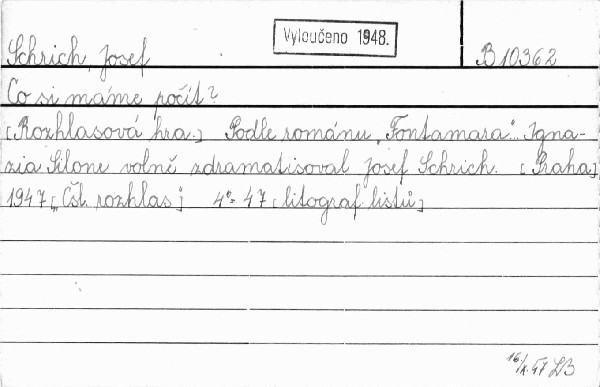 Vyloučeno 1948.
Schrich, Josef
B 10362
Co si máme počít?
[Rozhlasová hra.] Podle románu „Fontamara“ Igna-
zia Silone volně zdramatisoval Josef Schrich. [Praha,]
1947 [„Čsl. rozhlas“] 4° 47 [litograf. listů]